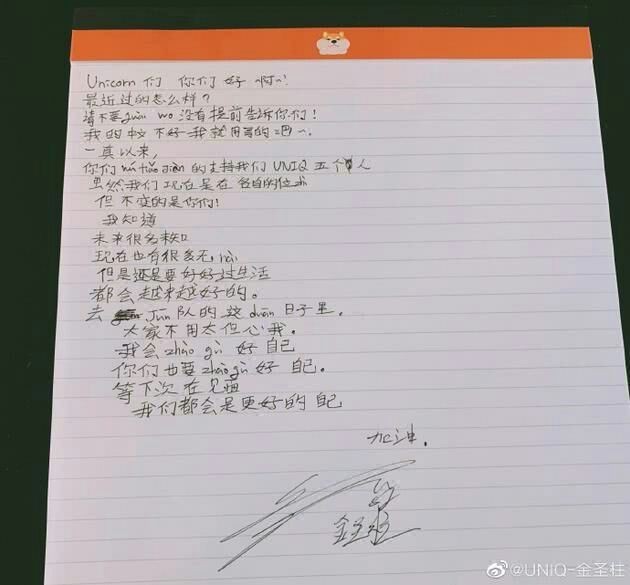 Unicorn们 你们好啊~!
最近过的怎么样?
请不要guài wo 没有提前告诉你们!
我的中文不好我就用写的吧~.
一真以来,
你们 wú tiáo jiàn 的支持我们 UNIQ 五个人
虽然我们现在是在各自的位
但不变的是你们!
我知道
未来很多未知
现在也有很多无 nài
但是还是要好好过生活
都会越来越好的。
去 jūn 队的这 duàn 日子里,
大家不用太但心我。
我会 zhào gù 好自己
你们也要 zhào gù 好自己。
等下次在见面
我们都会是更好的自己
加油.
金圣柱
@UNIQ-金圣柱